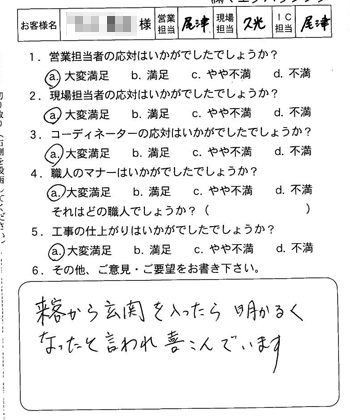 お客様名 様 営業担当 尾津 現場担当 久光 IC担当 尾津
1．営業担当者の応対はいかがでしたでしょうか？
a. 大変満足 b. 満足 c. やや不満 d. 不満
2．現場担当者の応対はいかがでしたでしょうか？
a. 大変満足 b. 満足 c. やや不満 d. 不満
3．コーディネーターの応対はいかがでしたでしょうか？
a. 大変満足 b. 満足 c. やや不満 d. 不満
4．職人のマナーはいかがでしたでしょうか？
a. 大変満足 b. 満足 c. やや不満 d. 不満
それはどの職人でしょうか？（ ）
5．工事の仕上がりはいかがでしたでしょうか？
a. 大変満足 b. 満足 c. やや不満 d. 不満
6．その他、ご意見・ご要望をお書き下さい。
来客から玄関を入ったら明かるく
なったと言われ喜こんでいます